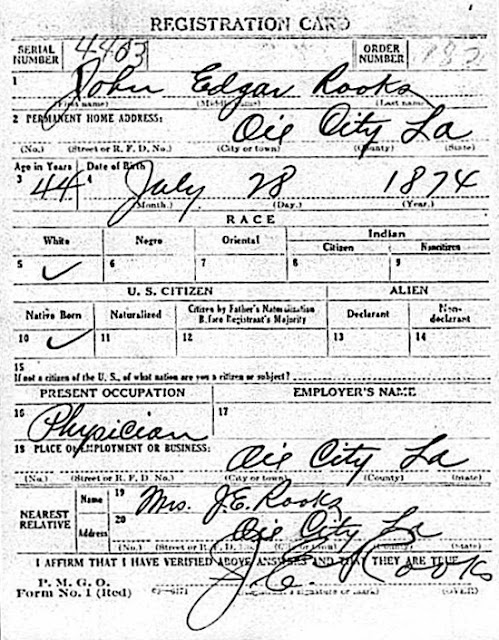 REGISTRATION CARD
SERIAL NUMBER 4403 ORDER NUMBER
1 John Edgar Rooks
(First name) (Middle name) (Last name)
2 PERMANENT HOME ADDRESS:
Oil City La
(No.) (Street or R. F. D. No.) (City or town) (County) (State)
Age in Years Date of Birth
3 44 4 July 28 1874
(Month.) (Day.) (Year.)
RACE
White Negro Oriental Indian
Citizen Noncitizen
5 ✓ 6 7 8 9
U. S. CITIZEN ALIEN
Native Born Naturalized Citizen by Father's Naturalization Before Registrant's Majority Declarant Non-declarant
10 ✓ 11 12 13 14
15
If not a citizen of the U. S., of what nation are you a citizen or subject?
PRESENT OCCUPATION EMPLOYER'S NAME
16 Physician 17
18 PLACE OF EMPLOYMENT OR BUSINESS:
Oil City La
(No.) (Street or R. F. D. No.) (City or town) (County) (State)
NEAREST RELATIVE Name 19 Mrs. J.E. Rooks
Address 20 Oil City La
(No.) (Street or R. F. D. No.) (City or town) (County) (State)
I AFFIRM THAT I HAVE VERIFIED ABOVE ANSWERS AND THAT THEY ARE TRUE
P. M. G. O.
Form No. 1 (Red) J. E. Rooks
(Registrant's signature or mark) (OVER)